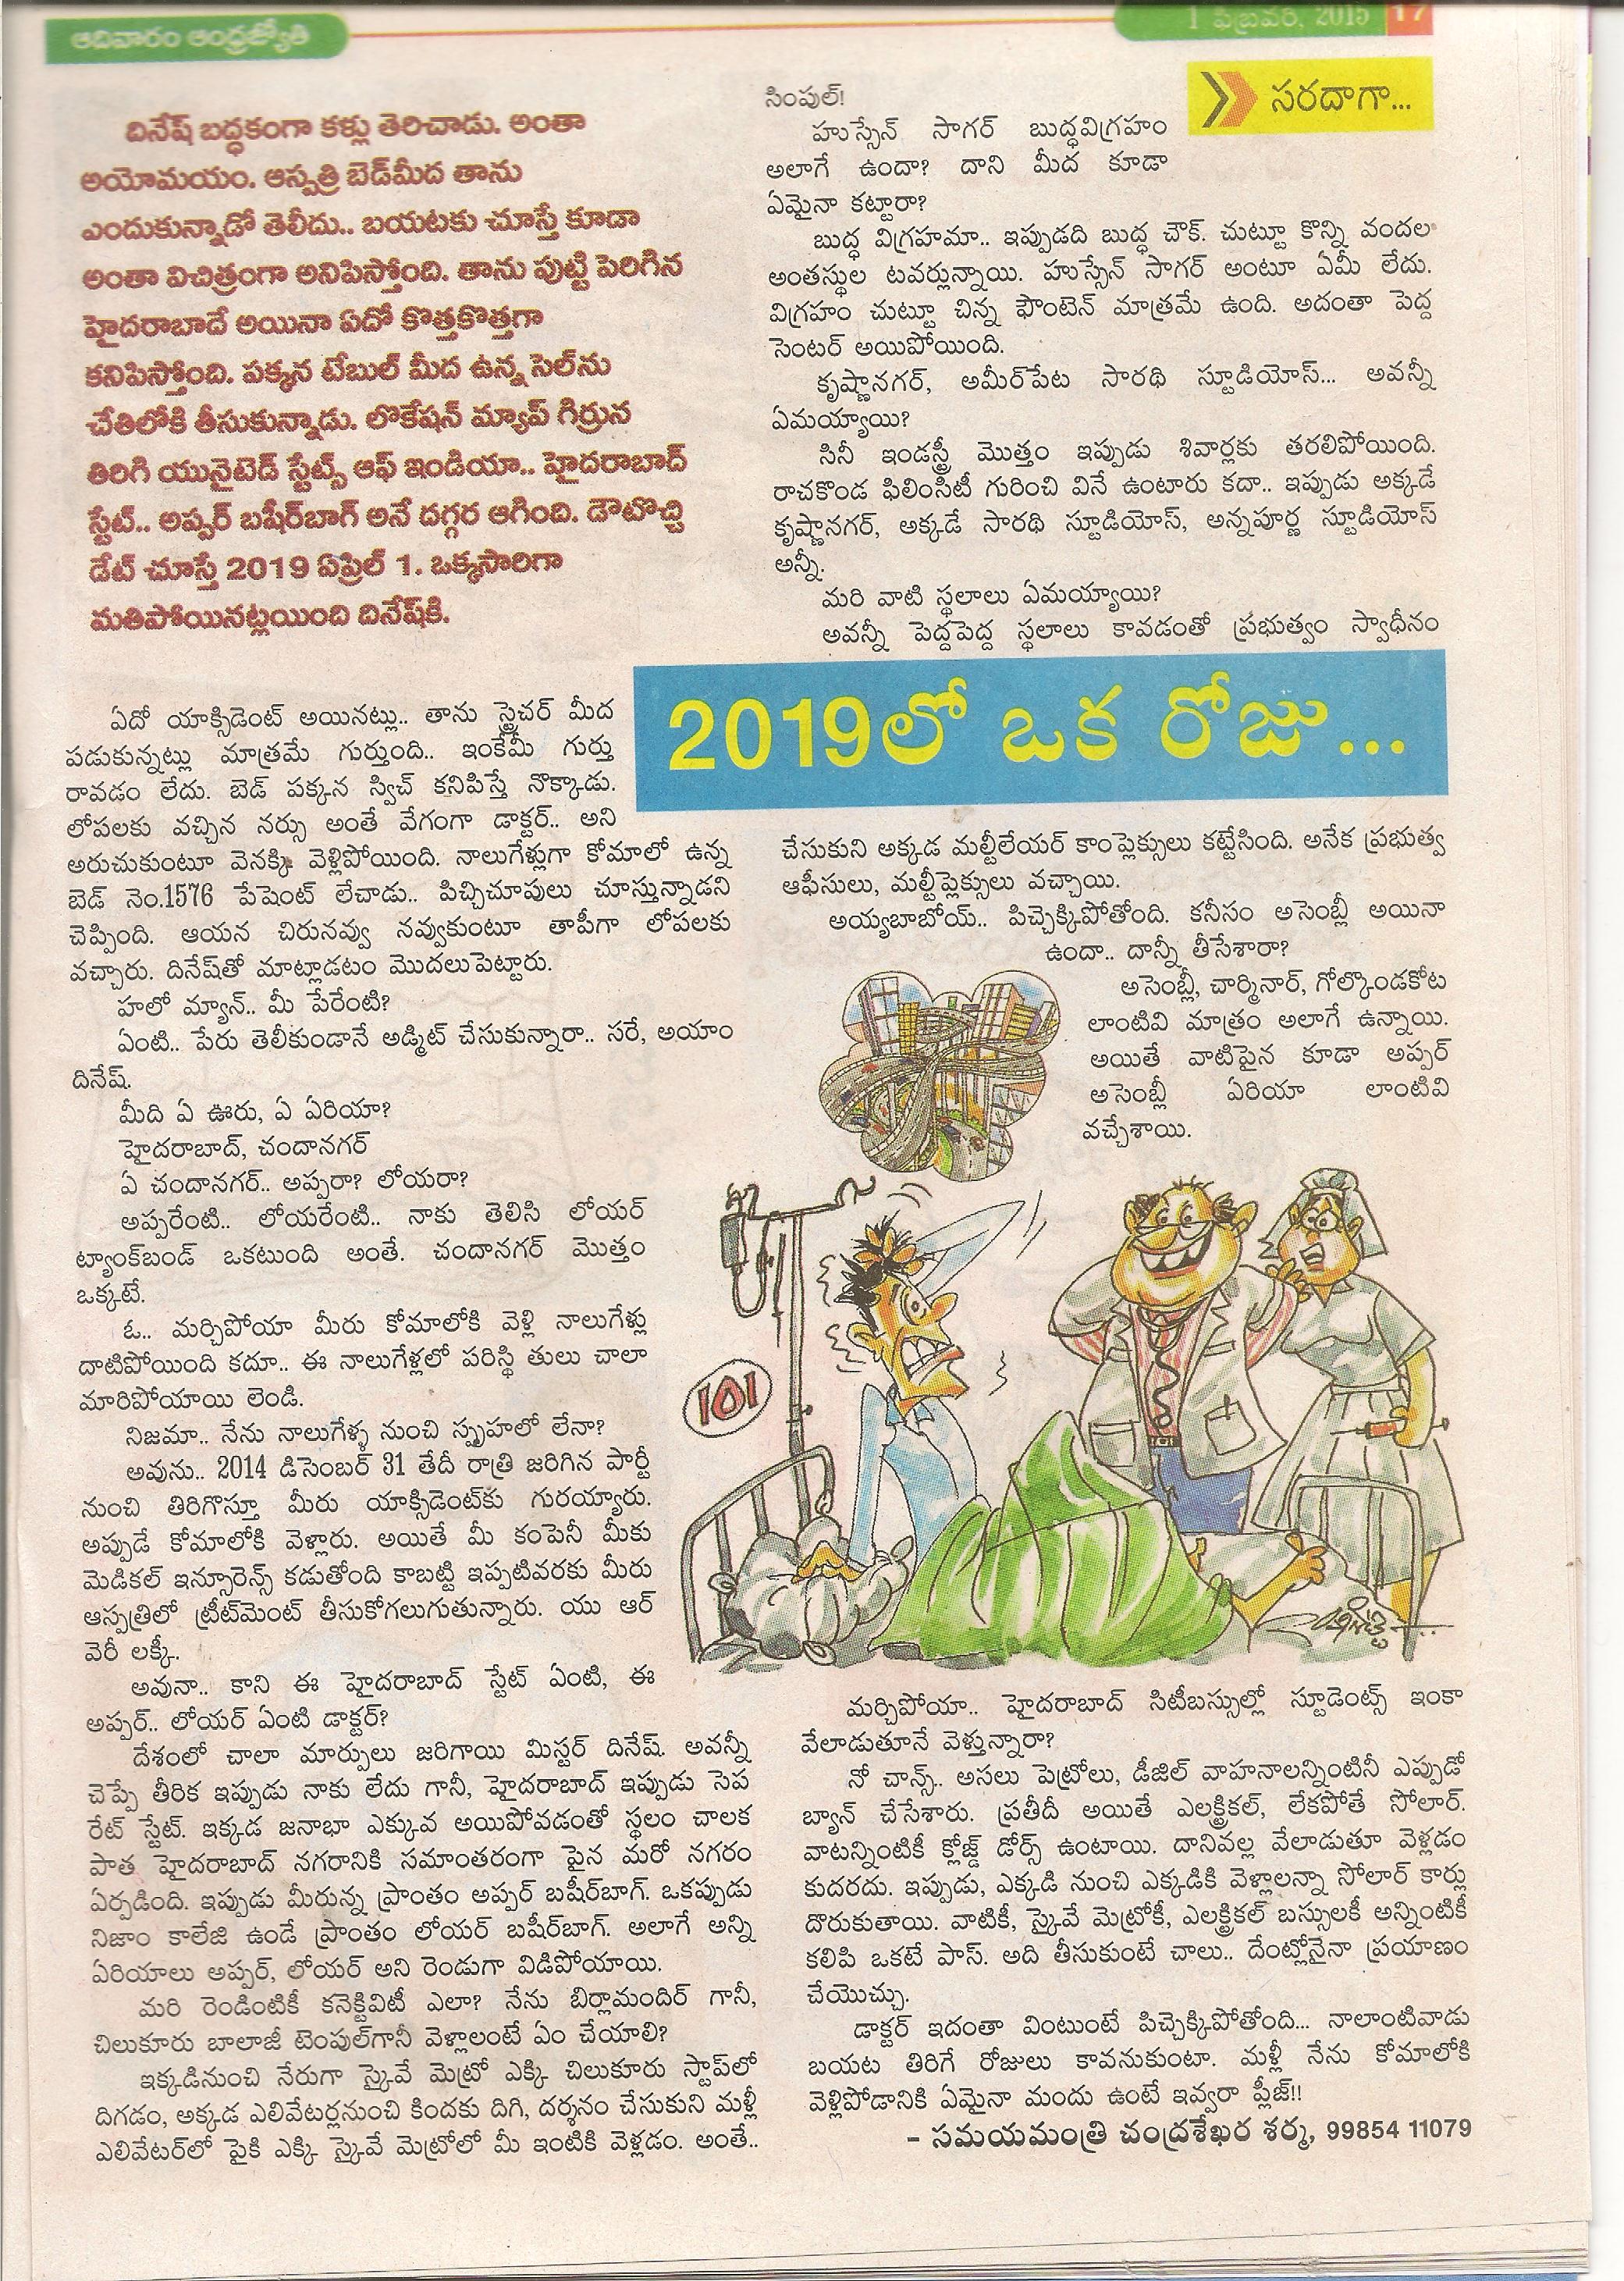 ఆదివారం ఆంధ్రజ్యోతి
1 ఫిబ్రవరి, 2015 17
సరదాగా...
దినేష్ బద్ధకంగా కళ్లు తెరిచాడు. అంతా
అయోమయం. ఆస్పత్రి బెడ్‌మీద తాను
ఎందుకున్నాడో తెలీదు.. బయటకు చూస్తే కూడా
అంతా విచిత్రంగా అనిపిస్తోంది. తాను పుట్టి పెరిగిన
హైదరాబాదే అయినా ఏదో కొత్తకొత్తగా
కనిపిస్తోంది. పక్కన టేబుల్ మీద ఉన్న సెల్‌ను
చేతిలోకి తీసుకున్నాడు. లొకేషన్ మ్యాప్ గిర్రున
తిరిగి యునైటెడ్ స్టేట్స్ ఆఫ్ ఇండియా.. హైదరాబాద్
స్టేట్.. అప్పర్ బషీర్‌బాగ్ అనే దగ్గర ఆగింది. డౌటొచ్చి
డేట్ చూస్తే 2019 ఏప్రిల్ 1. ఒక్కసారిగా
మతిపోయినట్లయింది దినేష్‌కి.
2019లో ఒక రోజు...
ఏదో యాక్సిడెంట్ అయినట్లు.. తాను స్ట్రెచర్ మీద
పడుకున్నట్లు మాత్రమే గుర్తుంది.. ఇంకేమీ గుర్తు
రావడం లేదు. బెడ్ పక్కన స్విచ్ కనిపిస్తే నొక్కాడు.
లోపలకు వచ్చిన నర్సు అంతే వేగంగా డాక్టర్.. అని
అరుచుకుంటూ వెనక్కి వెళ్లిపోయింది. నాలుగేళ్లుగా కోమాలో ఉన్న
బెడ్ నెం.1576 పేషెంట్ లేచాడు.. పిచ్చిచూపులు చూస్తున్నాడని
చెప్పింది. ఆయన చిరునవ్వు నవ్వుకుంటూ తాపీగా లోపలకు
వచ్చారు. దినేష్‌తో మాట్లాడటం మొదలుపెట్టారు.
హలో మ్యాన్.. మీ పేరేంటి?
ఏంటి.. పేరు తెలీకుండానే అడ్మిట్ చేసుకున్నారా.. సరే, అయాం
దినేష్.
మీది ఏ ఊరు, ఏ ఏరియా?
హైదరాబాద్, చందానగర్
ఏ చందానగర్.. అప్పరా? లోయరా?
అప్పరేంటి.. లోయరేంటి.. నాకు తెలిసి లోయర్
ట్యాంక్‌బండ్ ఒకటుంది అంతే. చందానగర్ మొత్తం
ఒక్కటే.
ఓ.. మర్చిపోయా మీరు కోమాలోకి వెళ్లి నాలుగేళ్లు
దాటిపోయింది కదూ.. ఈ నాలుగేళ్లలో పరిస్థి తులు చాలా
మారిపోయాయి లెండి.
నిజమా.. నేను నాలుగేళ్ళ నుంచి స్పృహలో లేనా?
అవును.. 2014 డిసెంబర్ 31 తేదీ రాత్రి జరిగిన పార్టీ
నుంచి తిరిగొస్తూ మీరు యాక్సిడెంట్‌కు గురయ్యారు.
అప్పుడే కోమాలోకి వెళ్లారు. అయితే మీ కంపెనీ మీకు
మెడికల్ ఇన్సూరెన్స్ కడుతోంది కాబట్టి ఇప్పటివరకు మీరు
ఆస్పత్రిలో ట్రీట్‌మెంట్ తీసుకోగలుగుతున్నారు. యు ఆర్
వెరీ లక్కీ.
అవునా.. కాని ఈ హైదరాబాద్ స్టేట్ ఏంటి, ఈ
అప్పర్.. లోయర్ ఏంటి డాక్టర్?
దేశంలో చాలా మార్పులు జరిగాయి మిస్టర్ దినేష్. అవన్నీ
చెప్పే తీరిక ఇప్పుడు నాకు లేదు గానీ, హైదరాబాద్ ఇప్పుడు సెప
రేట్ స్టేట్. ఇక్కడ జనాభా ఎక్కువ అయిపోవడంతో స్థలం చాలక
పాత హైదరాబాద్ నగరానికి సమాంతరంగా పైన మరో నగరం
ఏర్పడింది. ఇప్పుడు మీరున్న ప్రాంతం అప్పర్ బషీర్‌బాగ్. ఒకప్పుడు
నిజాం కాలేజి ఉండే ప్రాంతం లోయర్ బషీర్‌బాగ్. అలాగే అన్ని
ఏరియాలు అప్పర్, లోయర్ అని రెండుగా విడిపోయాయి.
మరి రెండింటికీ కనెక్టివిటీ ఎలా? నేను బిర్లామందిర్ గానీ,
చిలుకూరు బాలాజీ టెంపుల్‌గానీ వెళ్లాలంటే ఏం చేయాలి?
ఇక్కడినుంచి నేరుగా స్కైవే మెట్రో ఎక్కి చిలుకూరు స్టాప్‌లో
దిగడం, అక్కడ ఎలివేటర్లనుంచి కిందకు దిగి, దర్శనం చేసుకుని మళ్లీ
ఎలివేటర్‌లో పైకి ఎక్కి స్కైవే మెట్రోలో మీ ఇంటికి వెళ్లడం. అంతే..
సింపుల్!
హుస్సేన్ సాగర్ బుద్ధవిగ్రహం
అలాగే ఉందా? దాని మీద కూడా
ఏమైనా కట్టారా?
బుద్ధ విగ్రహమా.. ఇప్పుడది బుద్ధ చౌక్. చుట్టూ కొన్ని వందల
అంతస్థుల టవర్లున్నాయి. హుస్సేన్ సాగర్ అంటూ ఏమీ లేదు.
విగ్రహం చుట్టూ చిన్న ఫౌంటెన్ మాత్రమే ఉంది. అదంతా పెద్ద
సెంటర్ అయిపోయింది.
కృష్ణానగర్, అమీర్‌పేట సారథి స్టూడియోస్... అవన్నీ
ఏమయ్యాయి?
సినీ ఇండస్ట్రీ మొత్తం ఇప్పుడు శివార్లకు తరలిపోయింది.
రాచకొండ ఫిలింసిటీ గురించి వినే ఉంటారు కదా.. ఇప్పుడు అక్కడే
కృష్ణానగర్, అక్కడే సారథి స్టూడియోస్, అన్నపూర్ణ స్టూడియోస్
అన్నీ.
మరి వాటి స్థలాలు ఏమయ్యాయి?
అవన్నీ పెద్దపెద్ద స్థలాలు కావడంతో ప్రభుత్వం స్వాధీనం
చేసుకుని అక్కడ మల్టీలేయర్ కాంప్లెక్సులు కట్టేసింది. అనేక ప్రభుత్వ
ఆఫీసులు, మల్టీప్లెక్సులు వచ్చాయి.
అయ్యబాబోయ్.. పిచ్చెక్కిపోతోంది. కనీసం అసెంబ్లీ అయినా
ఉందా.. దాన్నీ తీసేశారా?
అసెంబ్లీ, చార్మినార్, గోల్కొండకోట
లాంటివి మాత్రం అలాగే ఉన్నాయి.
అయితే వాటిపైన కూడా అప్పర్
అసెంబ్లీ ఏరియా లాంటివి
వచ్చేశాయి.
101
మర్చిపోయా.. హైదరాబాద్ సిటీబస్సుల్లో స్టూడెంట్స్ ఇంకా
వేలాడుతూనే వెళ్తున్నారా?
నో చాన్స్.. అసలు పెట్రోలు, డీజిల్ వాహనాలన్నింటినీ ఎప్పుడో
బ్యాన్ చేసేశారు. ప్రతీదీ అయితే ఎలక్ట్రికల్, లేకపోతే సోలార్.
వాటన్నింటికీ క్లోజ్డ్ డోర్స్ ఉంటాయి. దానివల్ల వేలాడుతూ వెళ్లడం
కుదరదు. ఇప్పుడు, ఎక్కడి నుంచి ఎక్కడికి వెళ్లాలన్నా సోలార్ కార్లు
దొరుకుతాయి. వాటికీ, స్కైవే మెట్రోకీ, ఎలక్ట్రికల్ బస్సులకీ అన్నింటికీ
కలిపి ఒకటే పాస్. అది తీసుకుంటే చాలు.. దేంట్లోనైనా ప్రయాణం
చేయొచ్చు.
డాక్టర్ ఇదంతా వింటుంటే పిచ్చెక్కిపోతోంది... నాలాంటివాడు
బయట తిరిగే రోజులు కావనుకుంటా. మళ్లీ నేను కోమాలోకి
వెళ్లిపోడానికి ఏమైనా మందు ఉంటే ఇవ్వరా ప్లీజ్!!
– సమయమంత్రి చంద్రశేఖర శర్మ, 99854 11079